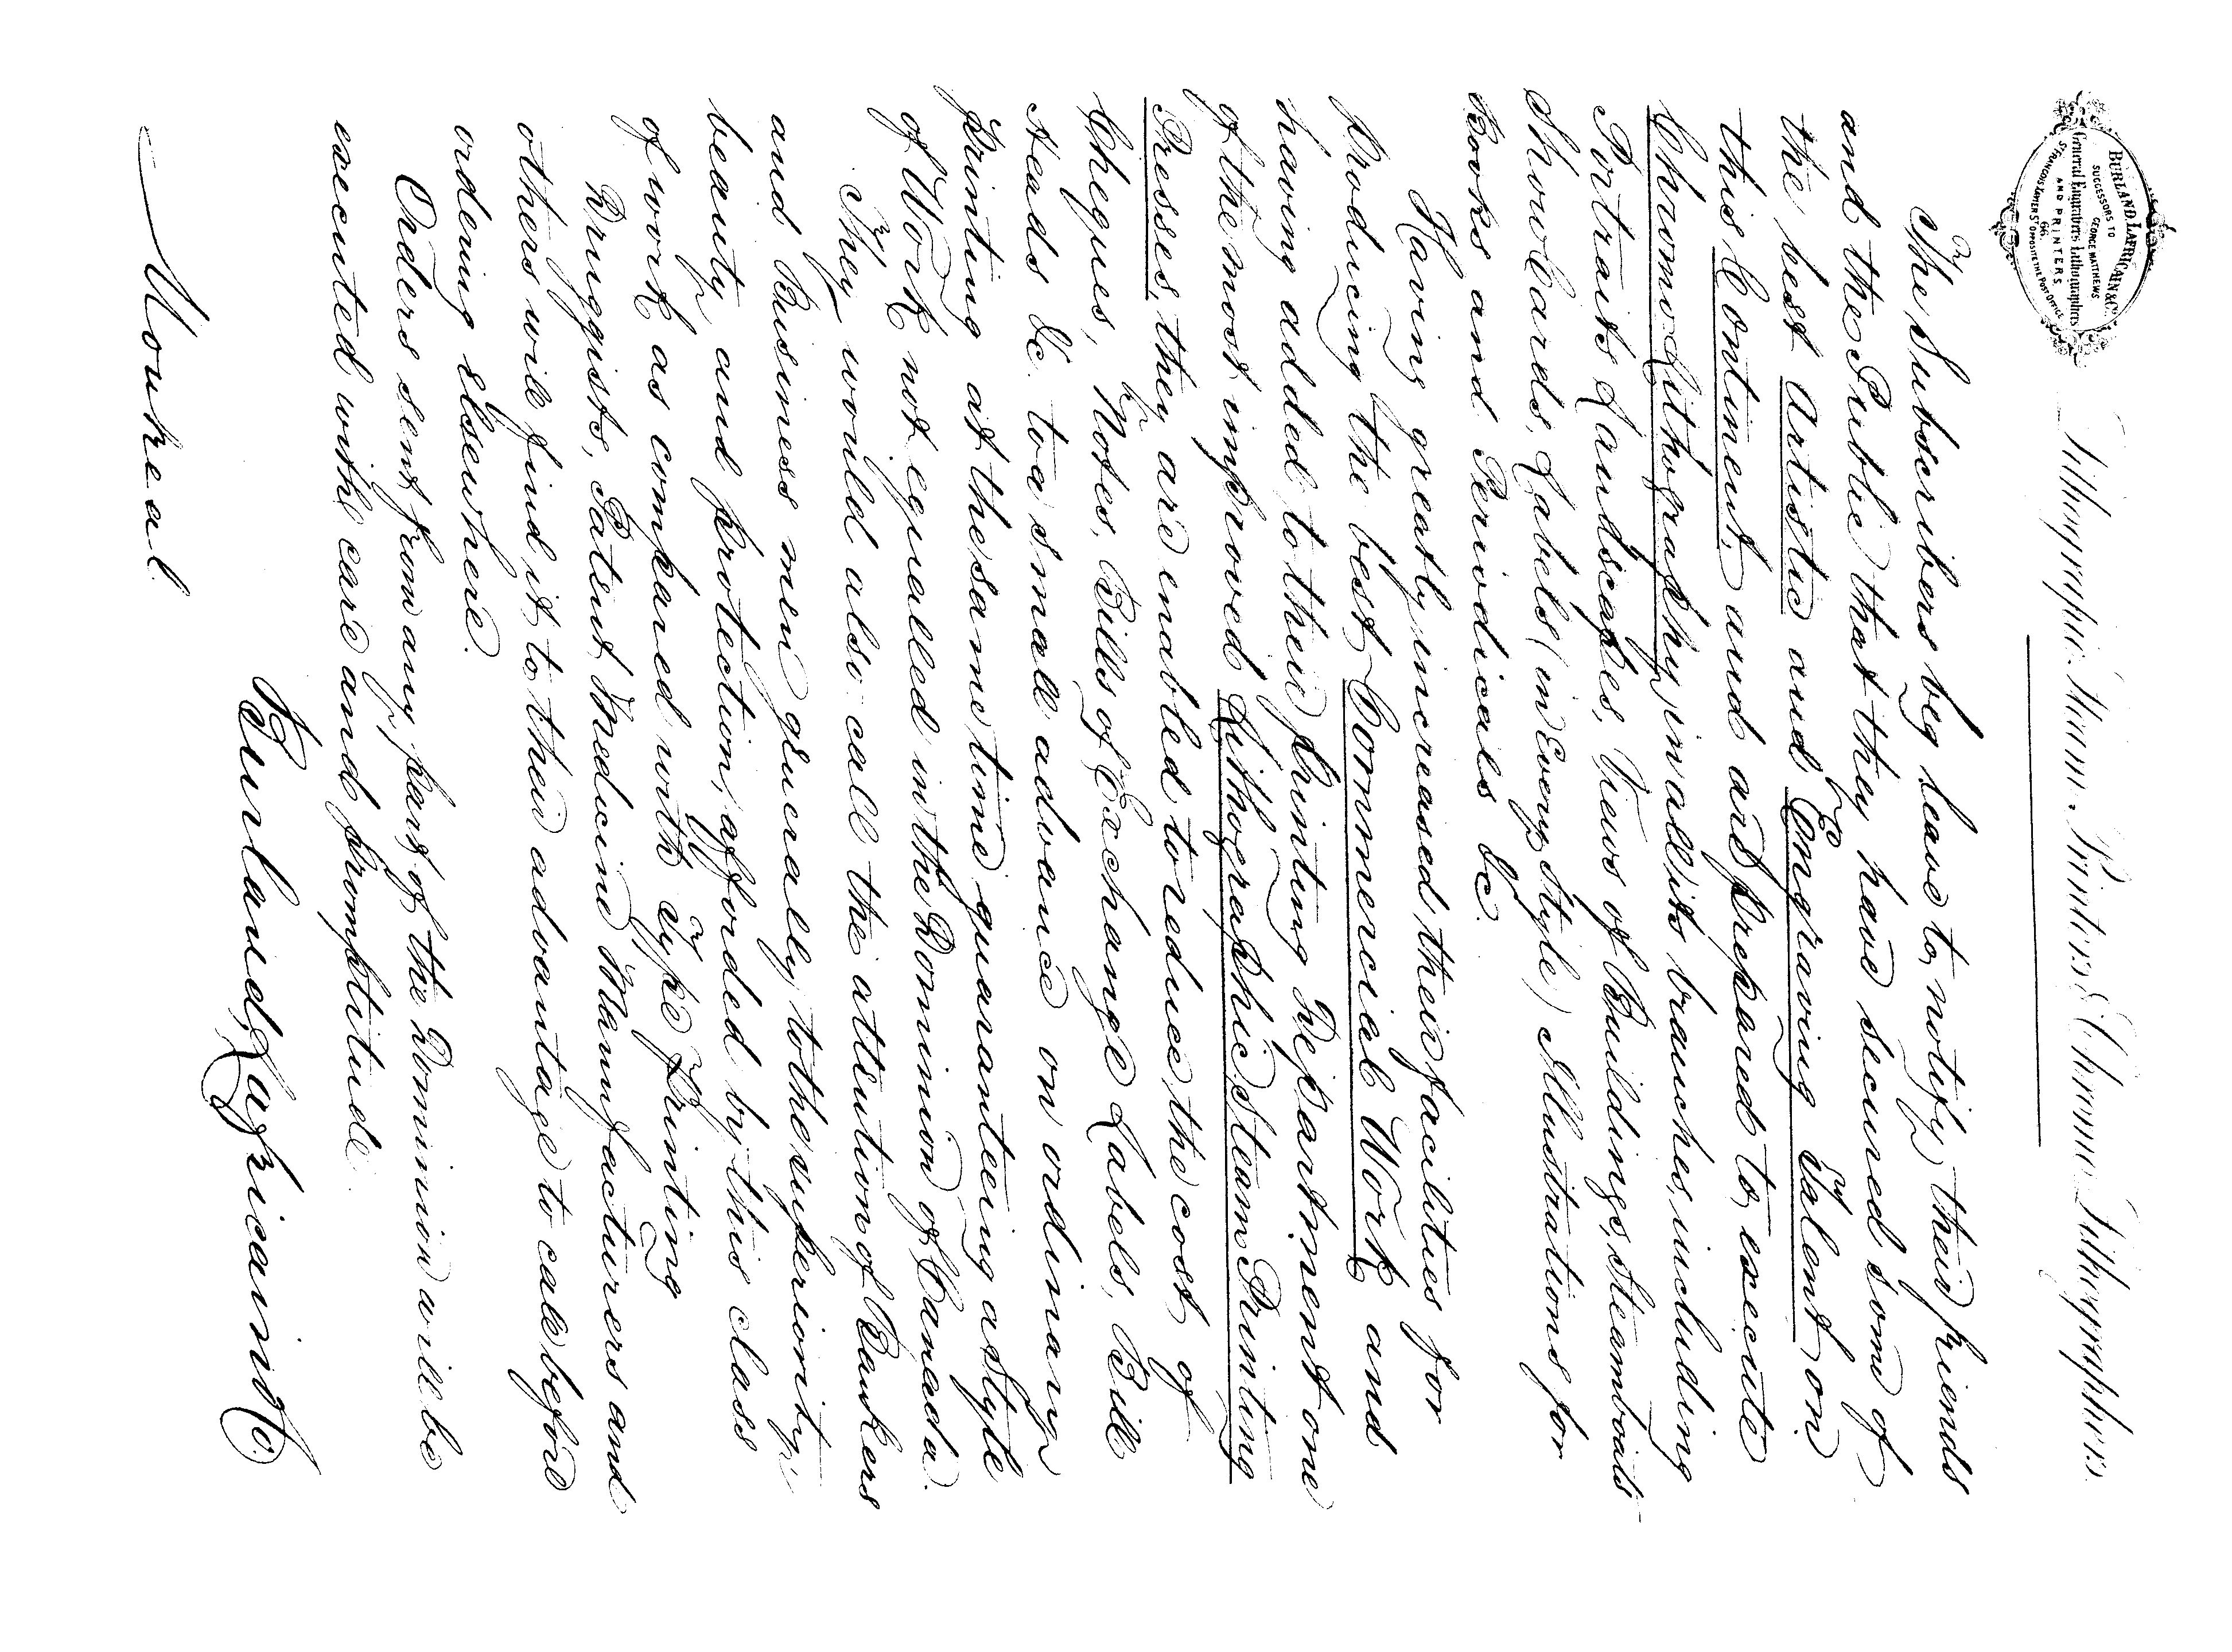 BURLAND, LAFRICAIN & Co.
SUCCESSORS TO
GEORGE MATTHEWS.
General Engravers Lithographers
AND PRINTERS.
66
St FRANCOIS XAVIER St OPPOSITE THE POST OFFICE
Lithographic Steam Printers & Chromo Lithographers.
The Subscribers beg leave to notify their friends
and the Public that they have secured some of
the best Artistic and Engraving Talent on
this Continent, and are prepared to execute
Chromo-Lithography in all its branches, including
Portraits Landscapes, Views of Buildings, Steamboats
Show Cards, Labels (in Every Style) Illustrations for
Books and Periodicals &c.
Having greatly increased their facilities for
producing the best Commercial Work and
having added to their Printing Department one
of the most improved Lithographic Steam Printing
Presses, they are enabled to reduce the cost of
Cheques, Notes, Bills of Exchange Labels, Bill
Heads &c. to a small advance on ordinary
printing at the same time guaranteeing a style
of Work not equalled in the Dominion of Canada.
They would also call the attention of Bankers
and Business men generally to the superiority,
beauty and protection, afforded by this class
of work as compared with Type Printing
Druggists, Patent Medicine Manufacturers and
others will find it to their advantage to call before
ordering elsewhere.
Orders sent from any part of the Dominion will be
executed with care and promptitude.
Burland, Lafricain & Co.
Montreal